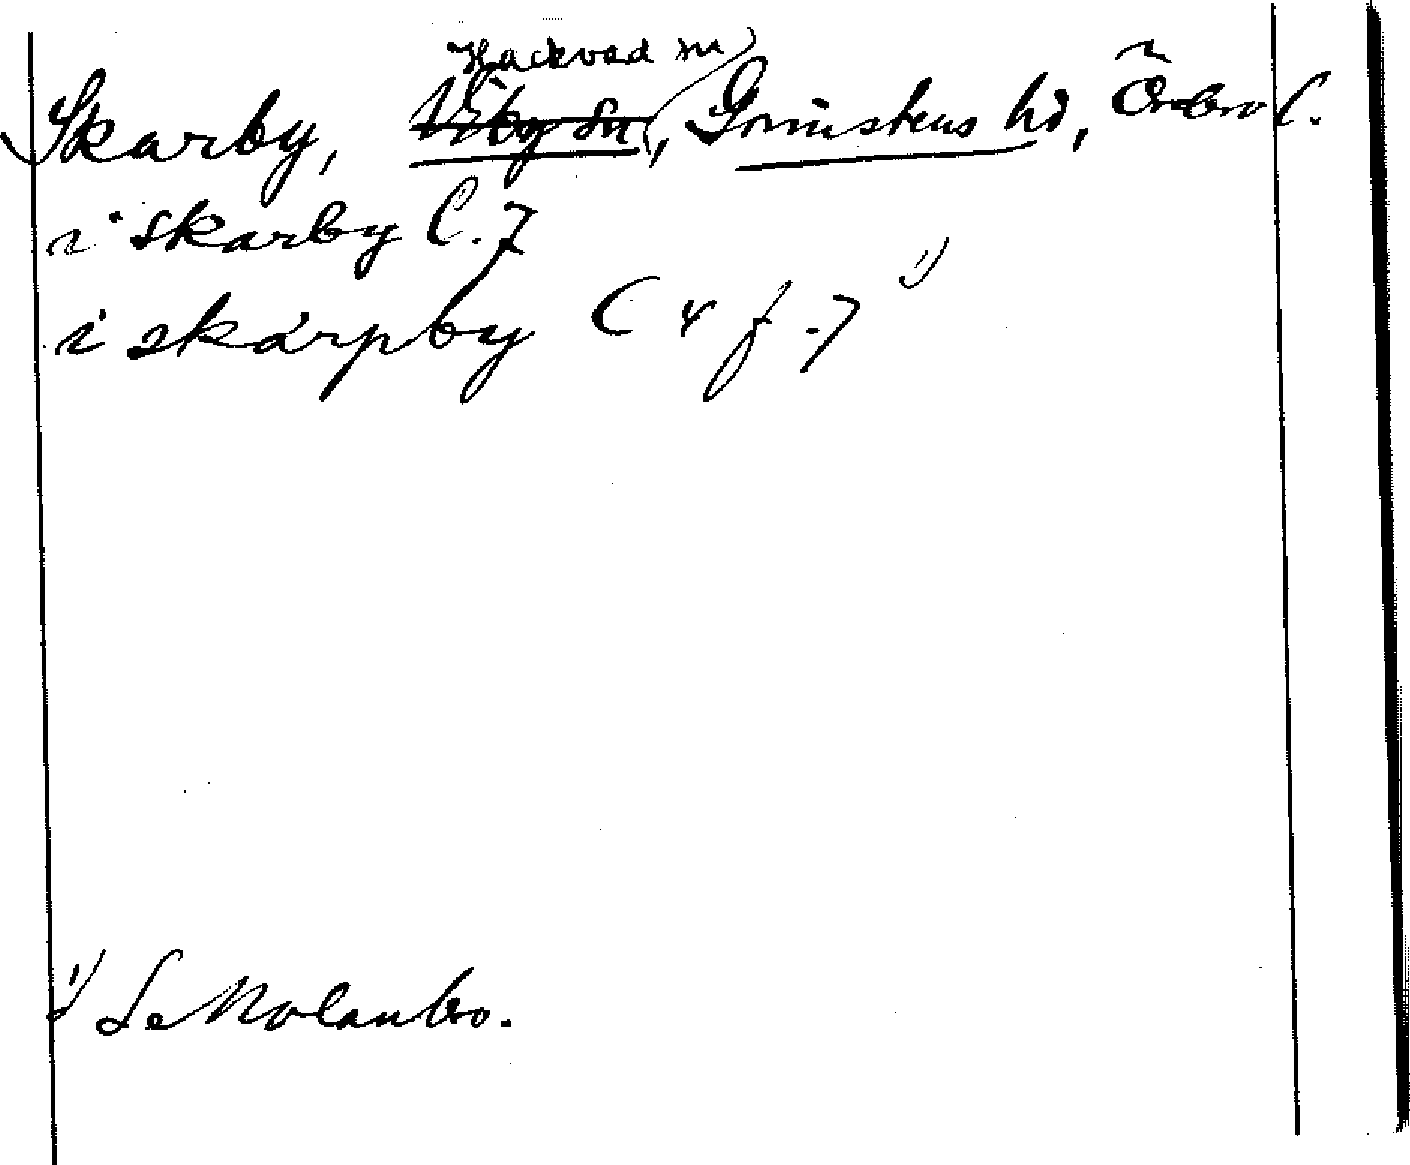 Hackvad sn
Skarby, Viby sn, Grimstens hd, Örebro l.
i skarby C. 7
i skarpby C 4 f. 7 1)
1) Se Nolanbo.